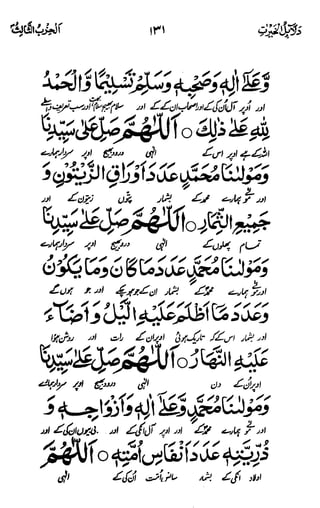 دلائل الخیرات ۱۳۱ الحزب الثالث
وَّعَلٰٓى اٰلِهٖ وَصَحْبِهٖ وَسَلِّمْ تَسْلِيْمًا وَّالْحَمْدُ
لِلّٰهِ عَلٰى ذٰلِكَ ○ اَللّٰهُمَّ صَلِّ عَلٰى سَيِّدِنَا
اللہ کے ہے اوپر اس کے الٰہی درود بھیج اوپر سردار ہمارے
وَمَوْلٰىنَا مُحَمَّدٍ عَدَدَ اَوْرَاقِ الزَّيْتُوْنِ وَ
اور ہمارے محمد کے بشمار پتوں زیتون کے اور
جَمِيْعِ الثِّمَارِ ○ اَللّٰهُمَّ صَلِّ عَلٰى سَيِّدِنَا
تمام پھلوں کے الٰہی درود بھیج اوپر سردار ہمارے
وَمَوْلٰىنَا مُحَمَّدٍ عَدَدَ مَا كَانَ وَمَا يَكُوْنُ
اور ہمارے محمد کے بشمار ان کے جو ہو چکے اور جو ہوں گے
وَعَدَدَ مَآ اَظْلَمَ عَلَيْهِ الَّيْلُ وَاَضَآءَ
اور بشمار اس کے کہ تاریک ہوئی اوپر ان کے رات اور روشن ہوا
عَلَيْهِ النَّهَارُ ○ اَللّٰهُمَّ صَلِّ عَلٰى سَيِّدِنَا
اوپر ان کے دن الٰہی درود بھیج اوپر سردار ہمارے
وَمَوْلٰىنَا مُحَمَّدٍ وَّعَلٰٓى اٰلِهٖ وَاَزْوَاجِهٖ وَ
اور ہمارے محمد کے اور اوپر آل انکی کے اور بی بیوں ان کی کے اور
ذُرِّيَّتِهٖ عَدَدَ اَنْفَاسِ اُمَّتِهٖ ○ اَللّٰهُمَّ
اولاد انکی کے بشمار سانسوں امت ان کی کے الٰہی